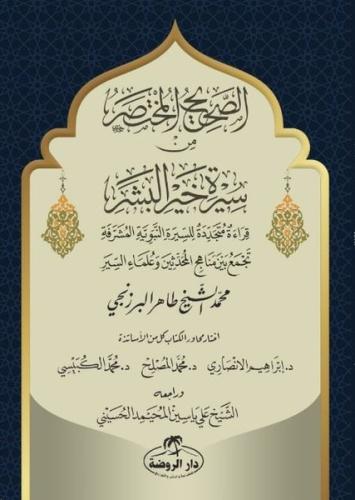 الصَّحِيحُ المُخْتَصَرُ
مِنْ
سِيرَةِ خَيْرِ البَشَرِ
قِرَاءَةٌ مُتَجَدِّدَةٌ لِلسِّيرَةِ النَّبَوِيَّةِ المُشَرَّفَةِ
تَجْمَعُ بَيْنَ مَنَاهِجِ المُحَدِّثِينَ وَعُلَمَاءِ السِّيَرِ
محمد الشيخ طاهر البرزنجي
اختار محاور الكتاب كل من الأساتذة
د. إبراهيم الانصاري د. محمد المصلح د. محمد الكبيسي
وراجعه
الشَّيْخ عَلي يَاسِين المُحَيمِد الحُسَيني
دار الروضة